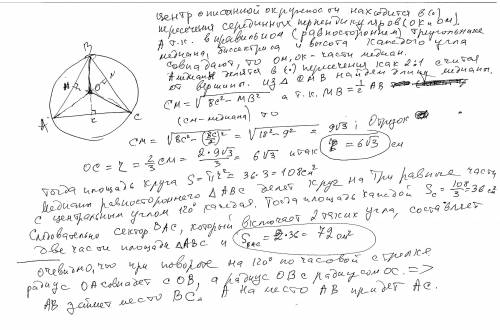 B
M
N
O
A
K
C
центр описанной окружности находится в (·)
пересечения серединных перпендикуляров (ОК и ОМ).
А т.к. в правильном (равностороннем) треугольнике
медиана, биссектриса и высота каждого угла
совпадают, то ОМ, ОК - части медиан.
А медианы делятся в (·) пересечения как 2:1 считая
от вершины. из △ CMB найдём длину медианы.
CM = √BC² - MB² а т.к. MB = ½ AB
(CM - медиана) то
CM = √BC² - (BC/2)² = √18² - 9² = 9√3; Отрезок
OC = r = 2/3 CM = 2·9√3/3 = 6√3 итак R = 6√3 см
Тогда площадь круга S = πr² = 36·3 = 108 см²
Медианы равностороннего △ABC делят круг на три равные части
с центральным углом 120° каждая. Тогда площадь каждой Sc = 108/3 = 36 см²
Следовательно сектор BAC, который включает 2 таких угла, составляет
две части площади △ABC и = 2·36 = 72 см²
очевидно, что при повороте на 120° по часовой стрелке
радиус OA совпадёт с OB, а радиус OB с радиусом OC. =>
AB займет место BC. А на место AB придёт AC.